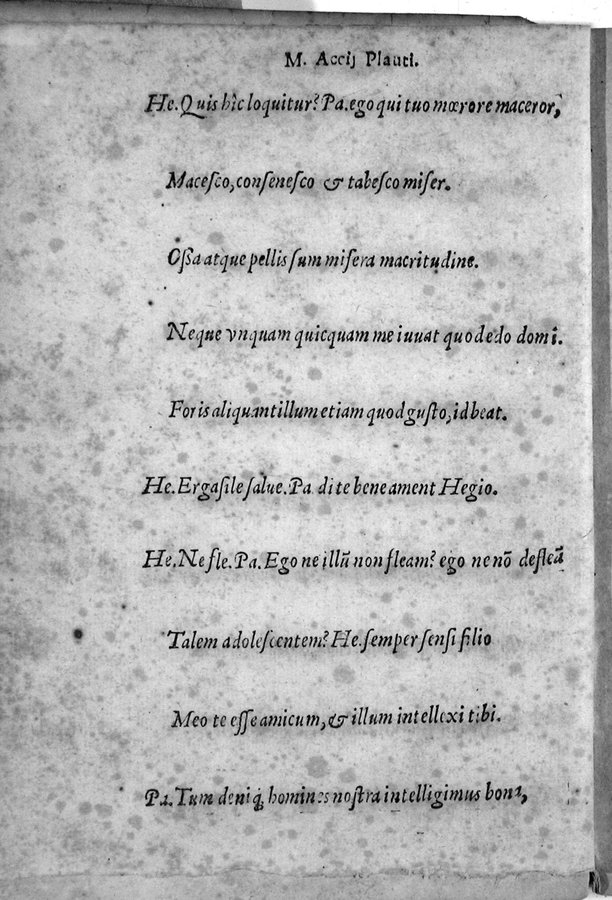 M. Accij Plauti.
He. Quis hîc loquitur? Pa. ego qui tuo mœrore maceror,
Macesco, consenesco & tabesco miser.
Ossa atque pellis sum misera macritudine.
Neque vnquam quicquam me iuuat quod edo domi.
Foris aliquantillum etiam quod gusto, id beat.
He. Ergasile salue. Pa di te bene ament Hegio.
He. Ne fle. Pa. Ego ne illũ non fleam? ego ne nõ defleã
Talem adolescentem? He. semper sensi filio
Meo te esse amicum, & illum intellexi tibi.
Pa. Tum deniq; homines nostra intelligimus bona,